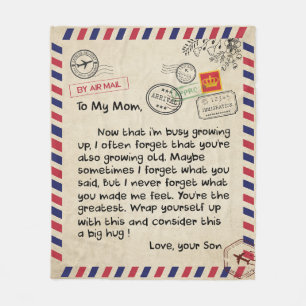 BY AIR MAIL
ARRIVAL
IMMIGRATION
To My Mom,
Now that i'm busy growing
up, I often forget that you're
also growing old. Maybe
sometimes I forget what you
said, But I never forget what
you made me feel. You're the
greatest. Wrap yourself up
with this and consider this
a big hug !
Love, your Son